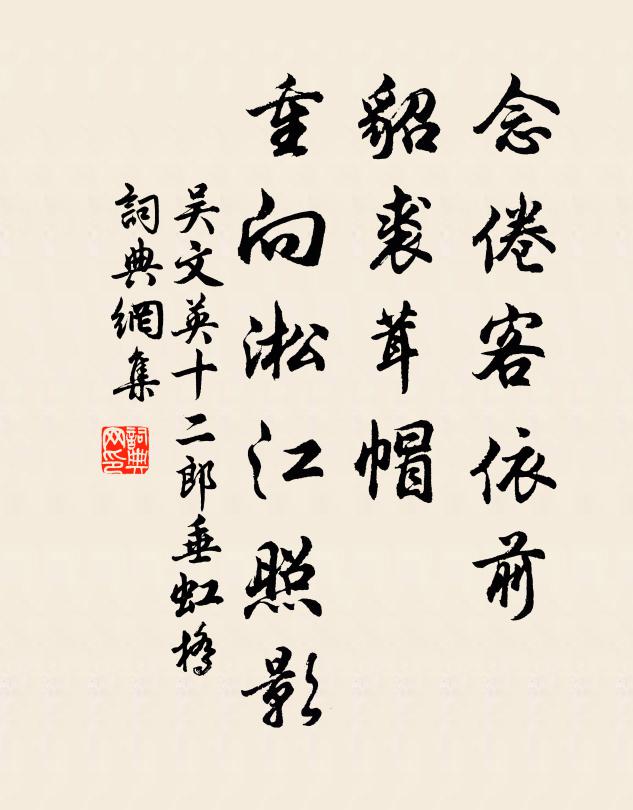 念倦客依前
貂裘茸帽
重向淞江照影
吴文英十二郎垂虹桥
詞典網集
詞典网印